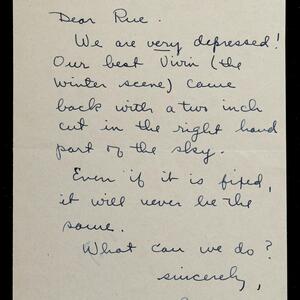 Dear Rue.
We are very depressed!
Our best Vivin (the
winter scene) came
back with a two inch
cut in the right hand
part of the sky.
Even if it is fixed,
it will never be the
same.
What can we do?
sincerely,